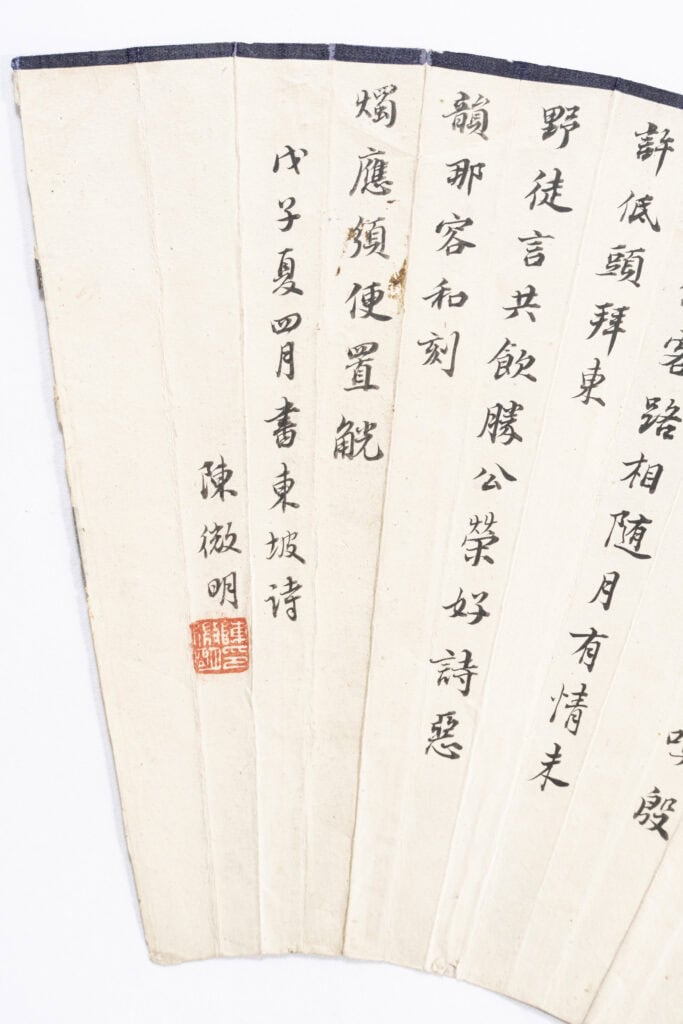 殷
客路相随月有情未
許低頭拜東
野徒言共飲勝公榮好詩惡
韻那容和刻
燭應須便置觥
戊子夏四月書東坡诗
陳微明